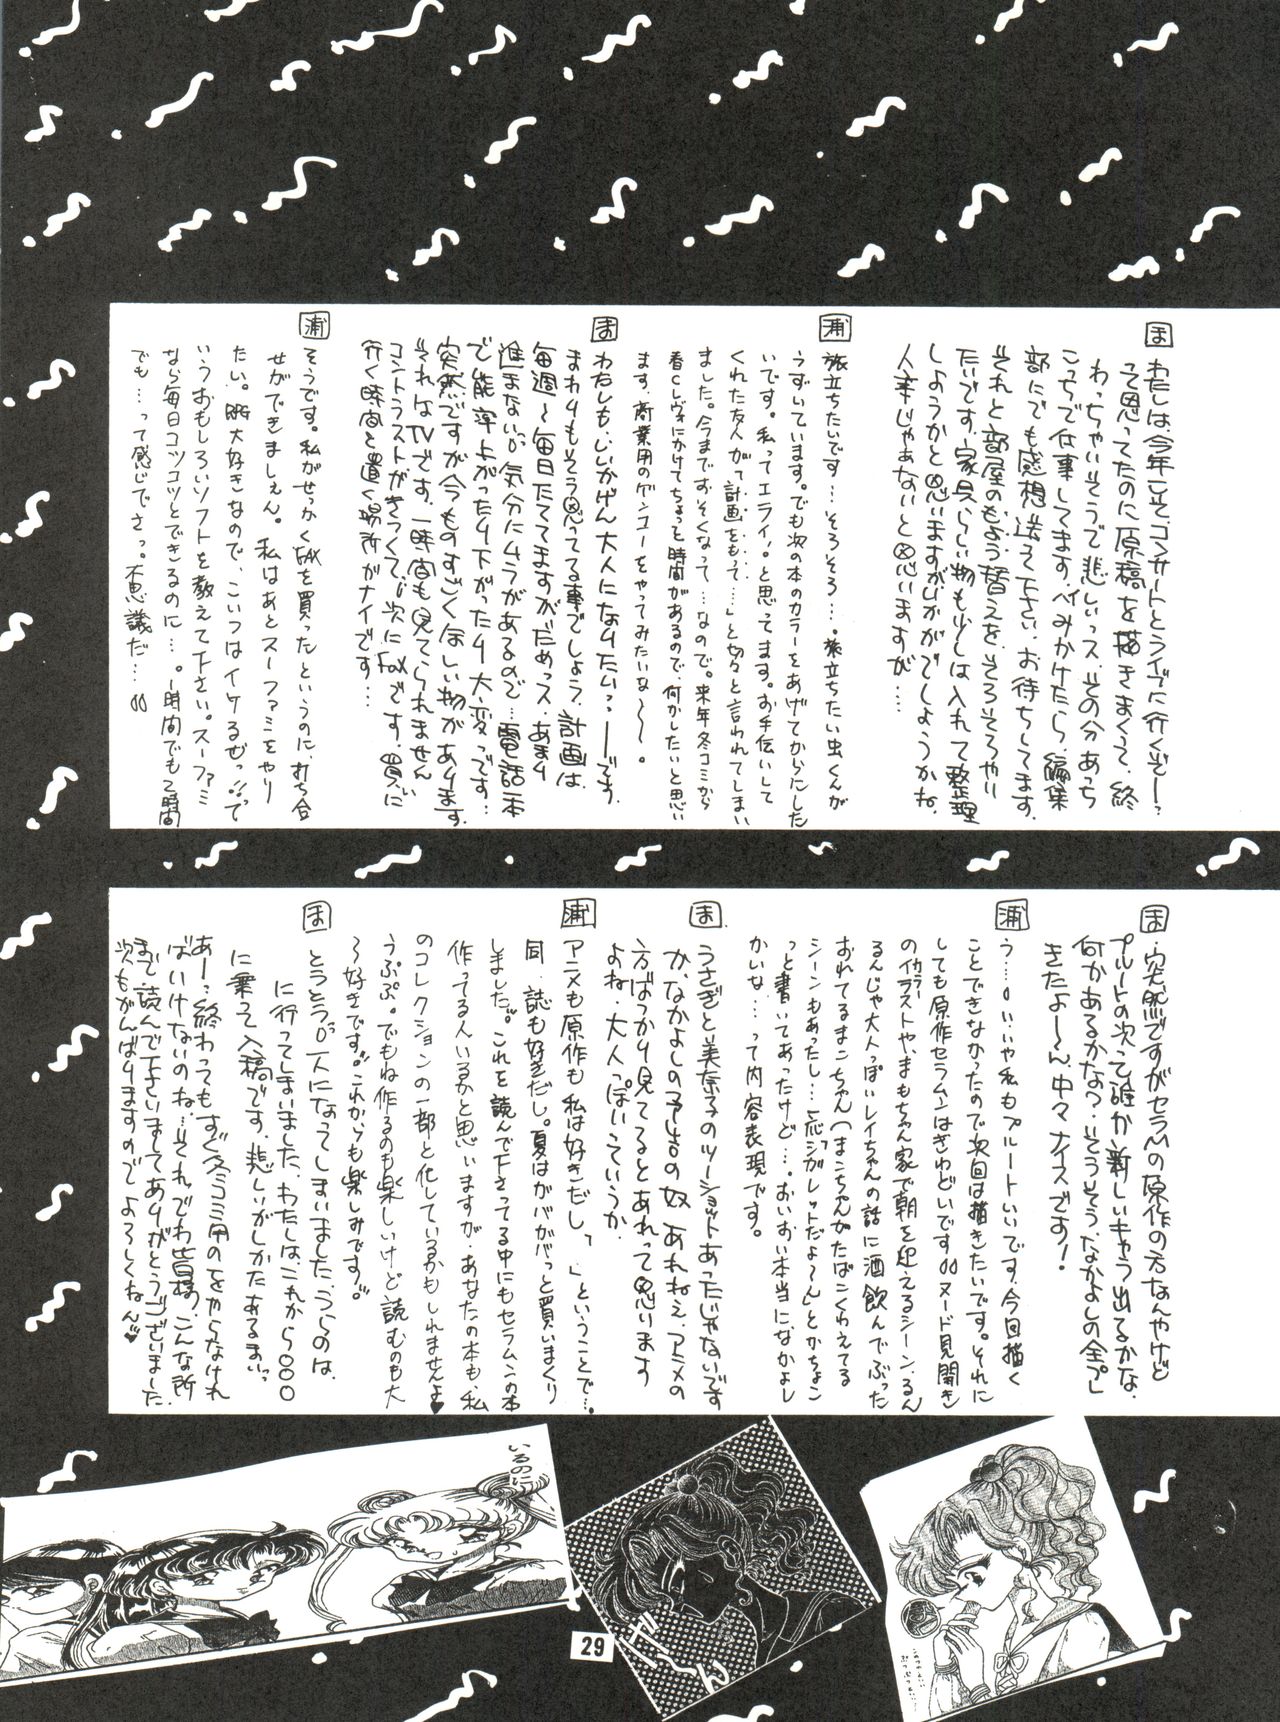 ま
わたしは、今年立て、コンサートとライブに行くぞーっ
って思ってたのに原稿を描きまくって、終
わっちゃいそうで悲しいっス。その分あっち
こっちで仕事してます。ペイみかけたら、編集
部にでも感想送って下さい。お待ちしてます。
それと部屋のもよう替えを、そろそろやり
たいです。家具らしい物も少しは入れて整理
しようかと思いますがいかがでしょうかね。
人事じゃあないと思いますが…
浦
旅立ちたいです…そろそろ…。旅立ちたい虫くんが
うずいています。でも次の本のカラーをあげてからにした
いです。私ってエライ!。と思ってます。お手伝いして
くれた友人が「計画をもって…」と切々と言われてしまい
ました。今まですぐそくなって…なので。来年冬コミから
春Cレヴォにかけてちょっと時間があるので、何かしたいと思い
ます。商業用のゲンコーをやってみたいな〜〜。
ま
わたしも…いいかげん大人になりたいっーです。
まわりもそう思ってる事でしょう。計画は
毎週〜毎日たててますがだめっス。あまり
進まない。気分にムラがあるので…電話一本
で能率上がったり下がったり大変っです…
突然ですが今ものすごくほしい物があります。
それはTVです。一時間も見てられません
コントラストがきつくて…次にFaxです。買いに
行く時間と置く場所がナイです…
浦
そうです。私がせっかくFAXを買ったというのに、打ち合
せができましぇん。私はあとスーファミをやり
たい。RPG大好きなので、こいつはイケるぜっ!!って
いうおもしろいソフトを教えて下さい。スーファミ
なら毎日コツコツとできるのに…。1時間でも2時間
でも…って感じでさっ。不思議だ…
ま
突然ですがセラムの原作の方なんやけど
プルートの次って誰か新しいキャラ出てるかな、
何かあるかな?そうそう、なかよしの全プレ
きたよ〜ん、中々ナイスです!
浦
う…いいや私もプルートいいです。今回描く
ことできなかったので次回は描きたいです。それに
しても原作セラムンはきわどいです ヌード見開き
のカラーイラストや、まもちゃん家で朝を迎えるシーン、るん
るんじゃ大人っぽいレイちゃんの話に酒飲んでぶった
おれてるまこちゃん(まこちゃんがたばこくわえてる
シーンもあったし…一応「シガレットだよ〜ん」とかちょん
っと書いてあったけど…。おいおい本当になかよし
かいな…って内容表現です。
ま
うさぎと美奈子のツーショットあったじゃないです
か、なかよしの予告の奴、あれねぇ、アニメの
方ばっかり見てるとあれって思います
よね。大人っぽいっていうか。
浦
アニメも原作も私は好きだしっ、」ということで…。
同人誌も好きだし。夏はガバガバっと買いまくり
しました。これを読んで下さってる中にもセラムンの本
作ってる人いるかと思いますが、あなたの本も、私
のコレクションの一部と化しているかもしれませんよ♥
うぷぷ。でもね作るのも楽しいけど読むのも大
〜好きです。これからも楽しみです。
ま
とうとう1人になってしまいました、うらのは、
に行ってしまいました、わたしは、これから○○○
に乗って入稿です。悲しいがしかたあるまいっ
あーっ終わってもすぐ冬コミ用のをやらなけれ
ばいけないのね…それでわ皆様、こんな所
まで読んで下さいましてありがとうございました
次もがんばりますのでよろしくねん♥
いるのに
ギーん
29